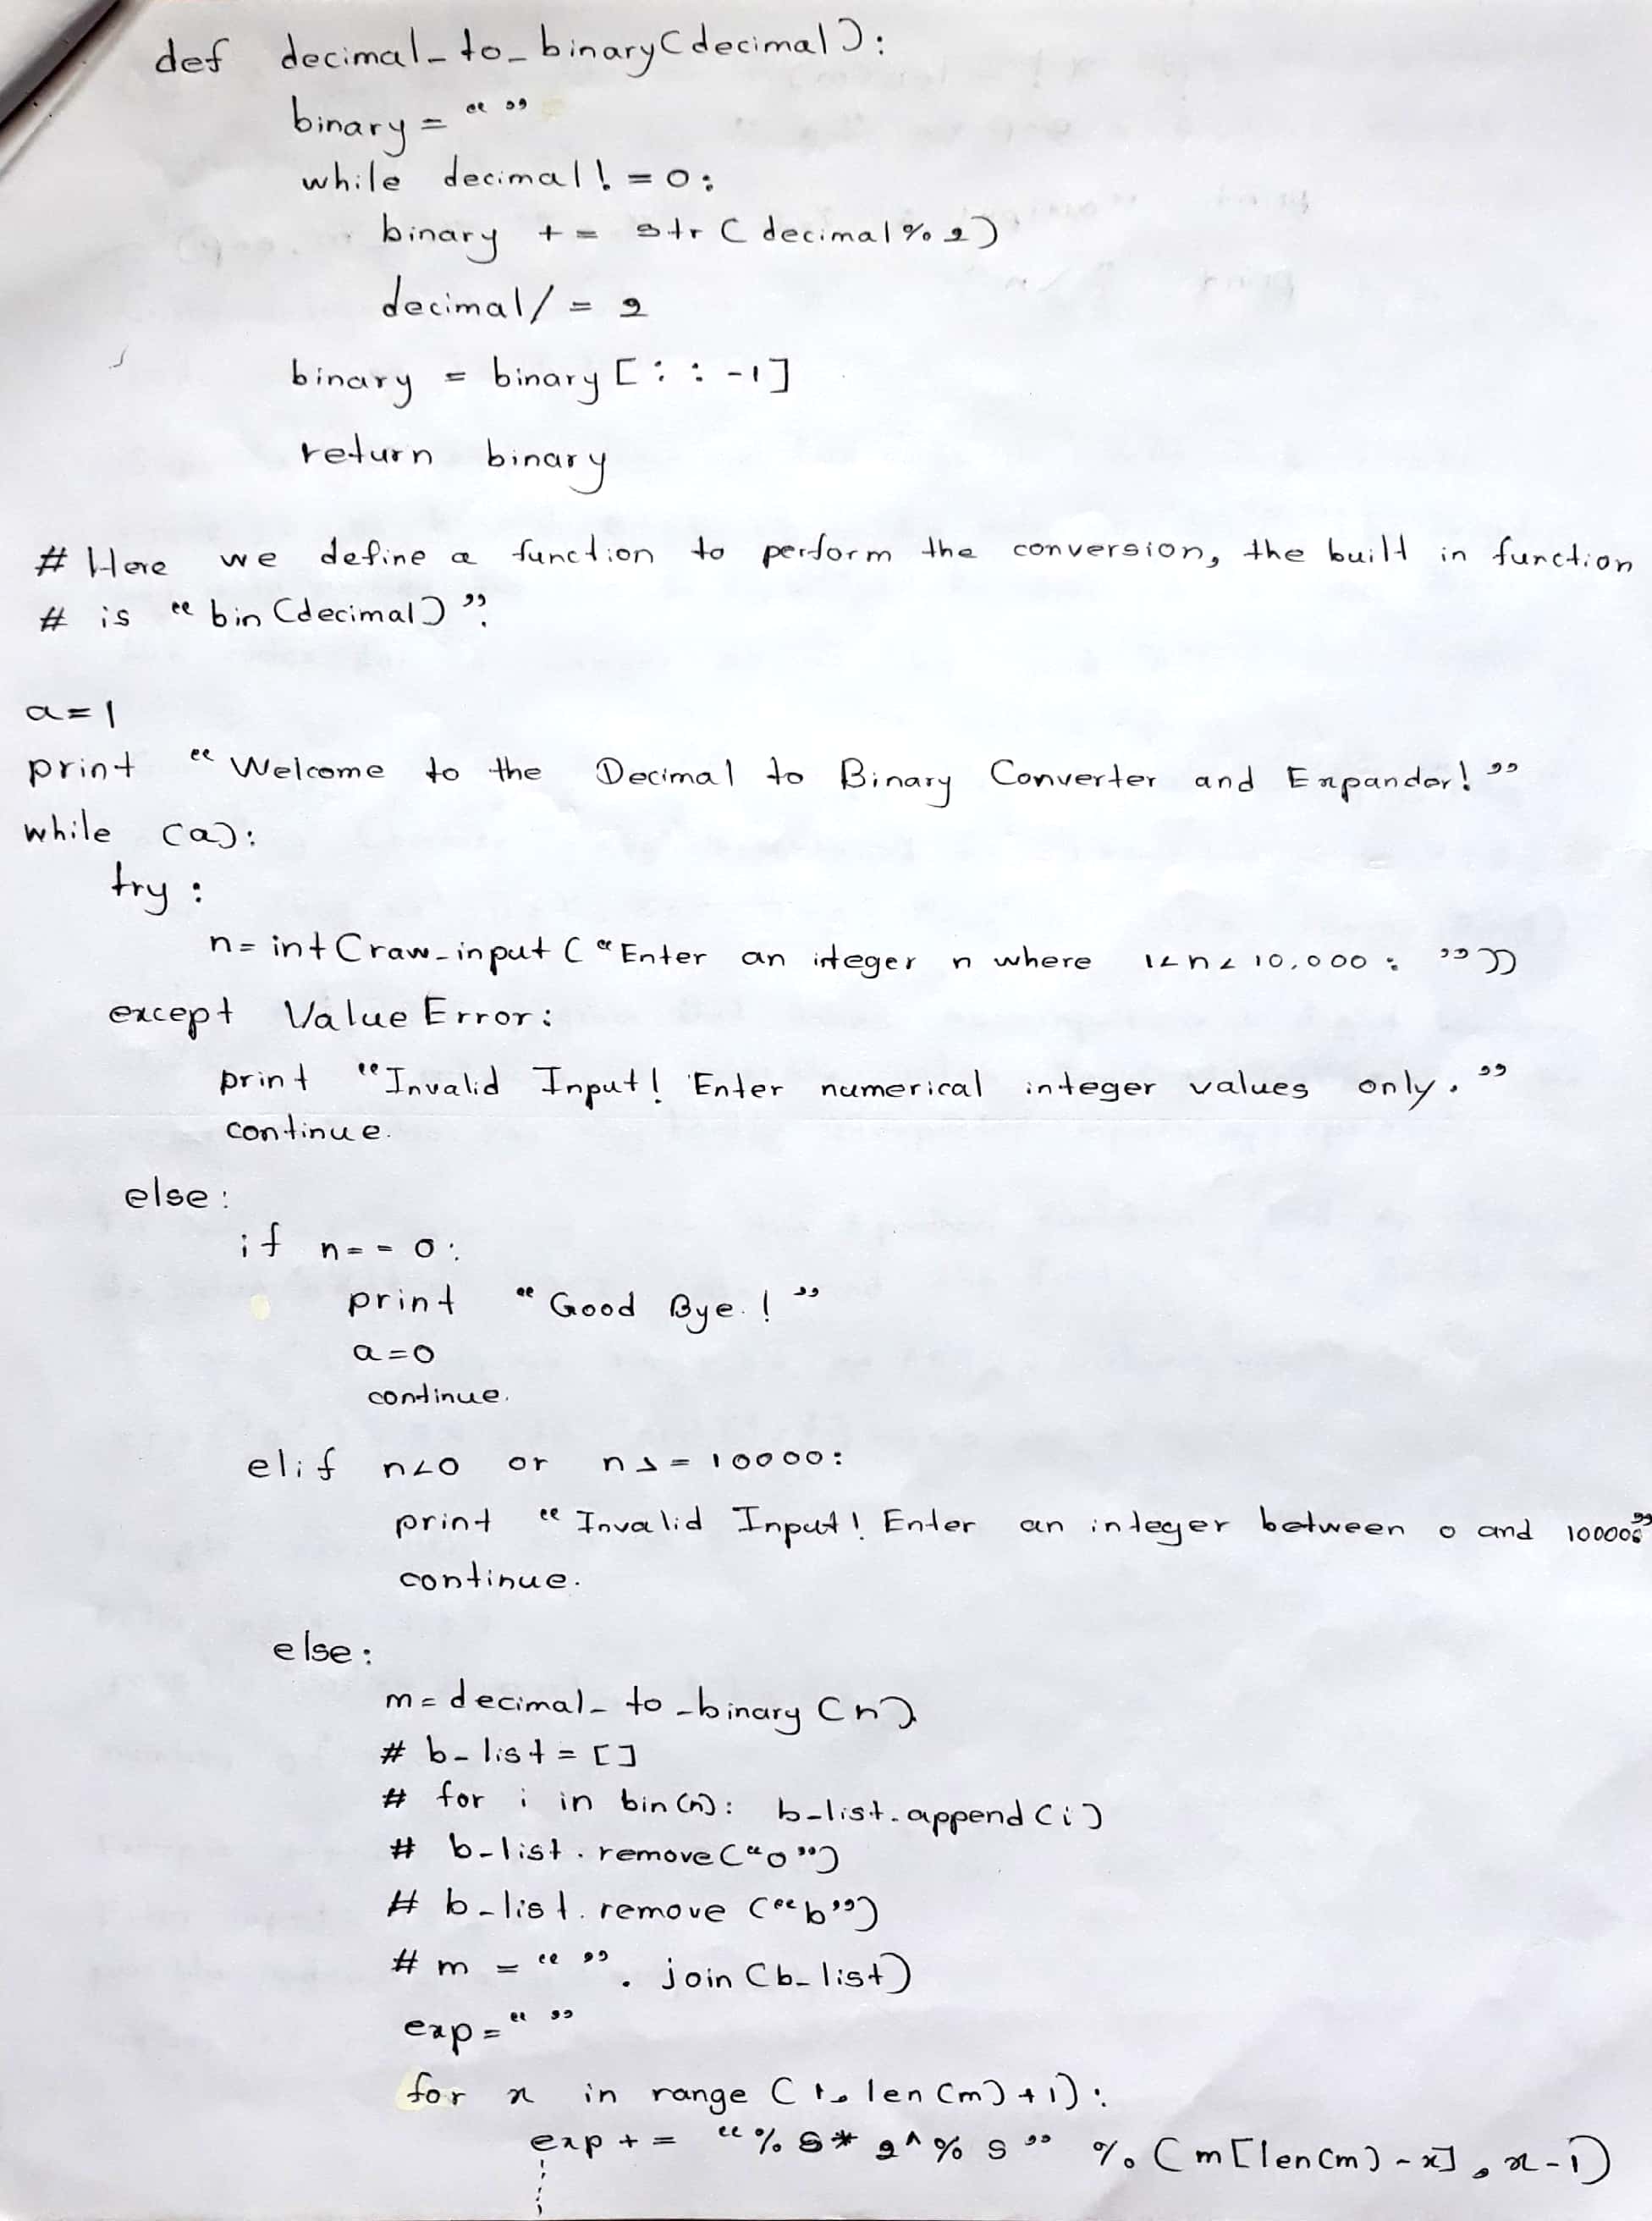 def decimal_to_binary(decimal):
binary = “ ”
while decimal != 0:
binary += str(decimal%2)
decimal/=2
binary = binary[::-1]
return binary
# Here we define a function to perform the conversion, the built in function
# is “bin(decimal)”.
a=1
print “Welcome to the Decimal to Binary Converter and Expander!”
while (a):
try:
n=int(raw_input(“Enter an integer n where 1<n<10,000: ”))
except ValueError:
print “Invalid Input! Enter numerical integer values only.”
continue.
else:
if n==0:
print “Good Bye.!”
a=0
continue.
elif n<0 or n>=10000:
print “Invalid Input! Enter an integer between 0 and 10000:”
continue.
else:
m=decimal_to_binary(n)
# b_list=[]
# for i in bin(n): b_list.append(i)
# b_list.remove(“0”)
# b_list.remove(“b”)
# m = “ ”.join(b_list)
exp=“ ”
for x in range (1,len(m)+1):
exp+= “%s*2^%s” %(m[len(m)-x],x-1)